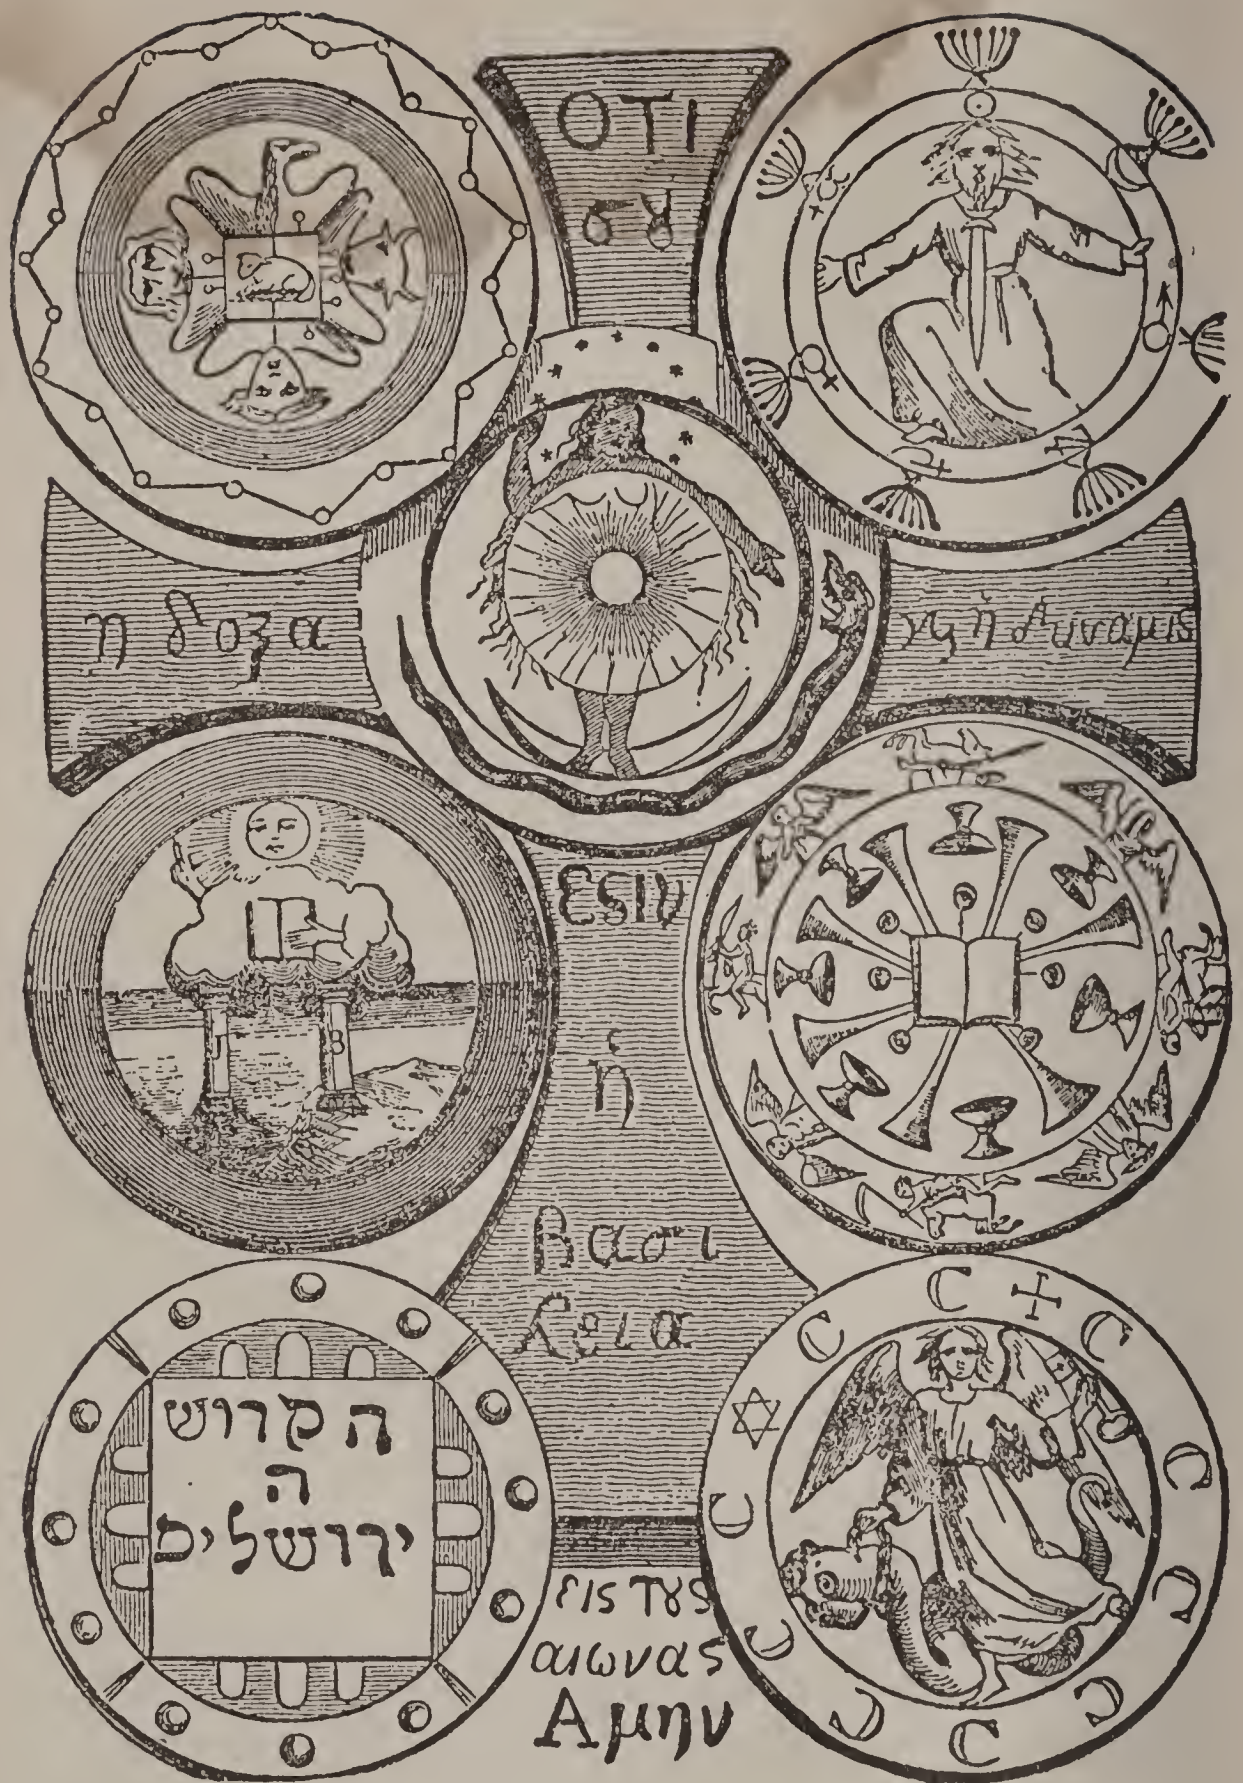 ΟΤΙ
σȣ
η δοξα
ϗ ἡ δυναμις
J B
ΕϛΙν
ἡ
βασι
λεια
הקרוש
ה
ירושלים
εις Τȣς
αιωνας
Αμην